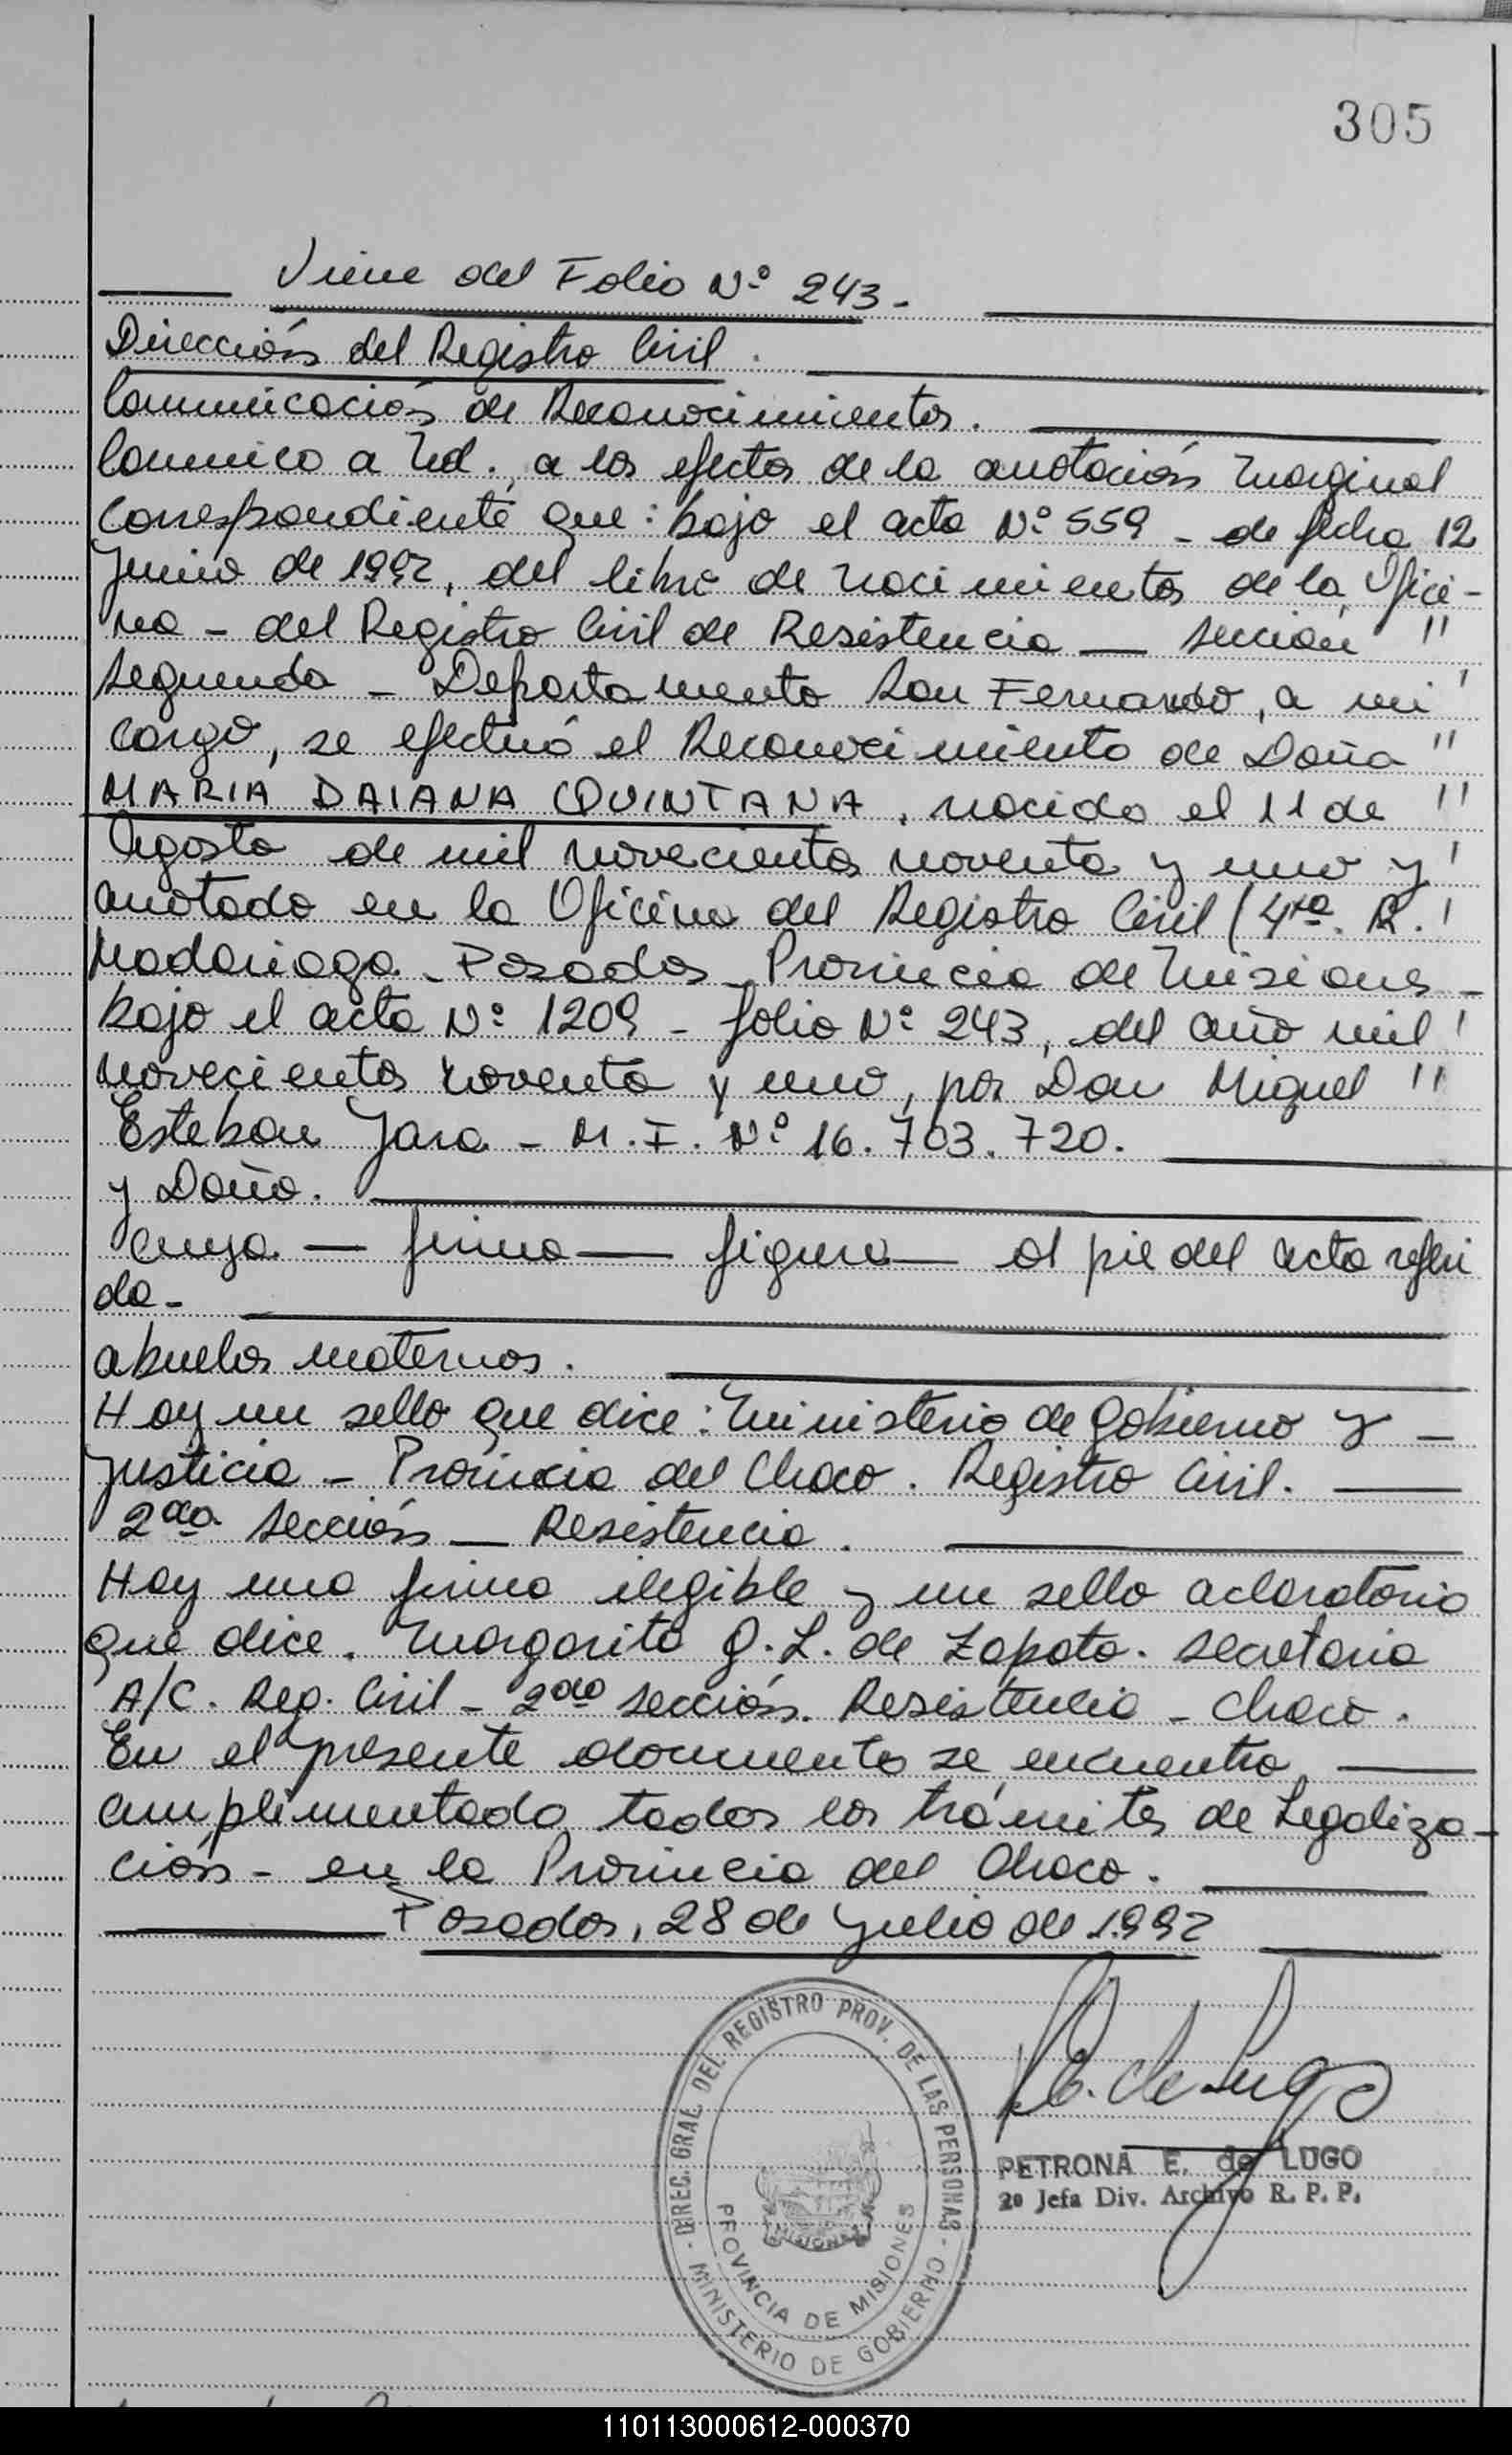 305
Viene del Folio Nº 243.
Dirección del Registro Civil.
Comunicación de Reconocimientos.
Comunico a Ud. a los efectos de la anotación marginal
correspondiente que: bajo el acta Nº 559 - de fecha 12
Junio de 1992, del libro de nacimientos de la Ofici-
na - del Registro Civil de Resistencia — sección "
segunda - Departamento San Fernando, a mi '
cargo, se efectuó el Reconocimiento de Doña "
MARIA DAIANA QUINTANA, nacida el 11 de "
Agosto de mil novecientos noventa y uno y '
anotada en la Oficina del Registro Civil (4ta. R. '
Madariaga - Posadas - Provincia de Misiones -
bajo el acta Nº 1209 - folio Nº 243, del año mil '
novecientos noventa y uno, por Don Miguel "
Esteban Jara - M.I. Nº 16.703.720.
y Doña.
cuya — firma — figura — al pie del acta referi
da -
abuelos maternos.
Hay un sello que dice: Ministerio de Gobierno y -
Justicia - Provincia del Chaco. Registro Civil.
2da Sección — Resistencia.
Hay una firma ilegible y un sello aclaratorio
que dice. Margarita G. L. de Zapata. Secretaria
A/C. Reg. Civil - 2da Sección. Resistencia - Chaco.
En el presente documento se encuentra
cumplimentado todos los trámites de Legaliza-
ción - en la Provincia del Chaco.
Posadas, 28 de Julio de 1992
DIREC. GRAL. DEL REGISTRO PROV. DE LAS PERSONAS - MINISTERIO DE GOBIERNO -
PROVINCIA DE MISIONES
MISIONES
E. de Lugo
PETRONA E. de LUGO
2º Jefa Div. Archivo R. P. P.
110113000612-000370